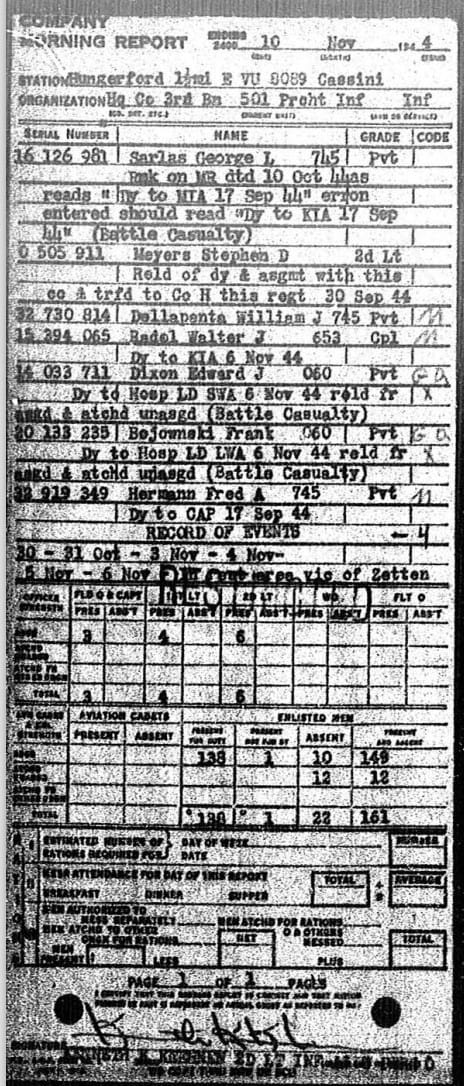 COMPANY
MORNING REPORT ENDING 2400 10 Nov 194 4
STATION Hungerford 1½mi E VU 8089 Cassini
ORGANIZATION Hq Co 3rd Bn 501 Prcht Inf Inf
SERIAL NUMBER NAME GRADE CODE
16 126 981 Sarlas George L 745 Pvt
Rmk on MR dtd 10 Oct 44as
reads " Dy to MIA 17 Sep 44" er
entered should read "Dy to KIA 17 Sep
44" (Battle Casualty)
0 505 911 Meyers Stephen D 2d Lt
Reld of dy & asgmt with this
co & trfd to Co H this regt 30 Sep 44
32 730 814 Dellapenta William J 745 Pvt
15 394 065 Radel Walter J 653 Cpl
Dy to KIA 6 Nov 44
14 033 711 Dixon Edward J 060 Pvt
Dy to Hosp LD SWA 6 Nov 44 reld fr
asgd & atchd unasgd (Battle Casualty)
20 133 235 Bojowski Frank 060 Pvt
Dy to Hosp LD LWA 6 Nov 44 reld fr
asgd & atchd unasgd (Battle Casualty)
32 919 349 Hermann Fred A 745 Pvt
Dy to CAP 17 Sep 44
RECORD OF EVENTS - 4
30 - 31 Oct - 3 Nov - 4 Nov-
5 Nov - 6 Nov area vic of Zetten
OFFICER STRENGTH FLD O & CAPT 1ST LT 2D LT WO FLT O
PRES ABS'T PRES ABS'T PRES ABS'T PRES ABS'T PRES ABS'T
ASGD 3 4 6
TOTAL 3 4 6
AVIATION CADETS ENLISTED MEN
PRESENT ABSENT PRESENT FOR DUTY PRESENT NOT FOR DY ABSENT PRESENT AND ABSENT
138 1 10 149
12 12
TOTAL 138 1 22 161
ESTIMATED NUMBER OF RATIONS REQUIRED FOR DAY OF WEEK DATE NUMBER
MESS ATTENDANCE FOR DAY OF THIS REPORT TOTAL AVERAGE
BREAKFAST DINNER SUPPER
MEN AUTHORIZED TO MESS SEPARATELY MEN ATCHD FOR RATIONS
MEN ATCHD TO OTHER ORGN FOR RATIONS NET OTHERS MESSED TOTAL
MEN PRESENT LESS PLUS
PAGE 1 OF 1 PAGES
SIGNATURE
KENNETH 2D LT INF